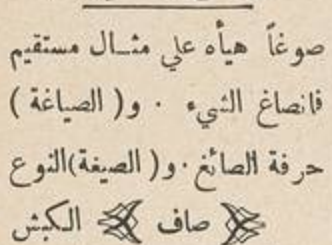 صوغاً هيأه علي مثال مستقيم
فانصاغ الشيء . و( الصياغة )
حرفة الصائغ . و( الصيغة)النوع
صاف الكبش